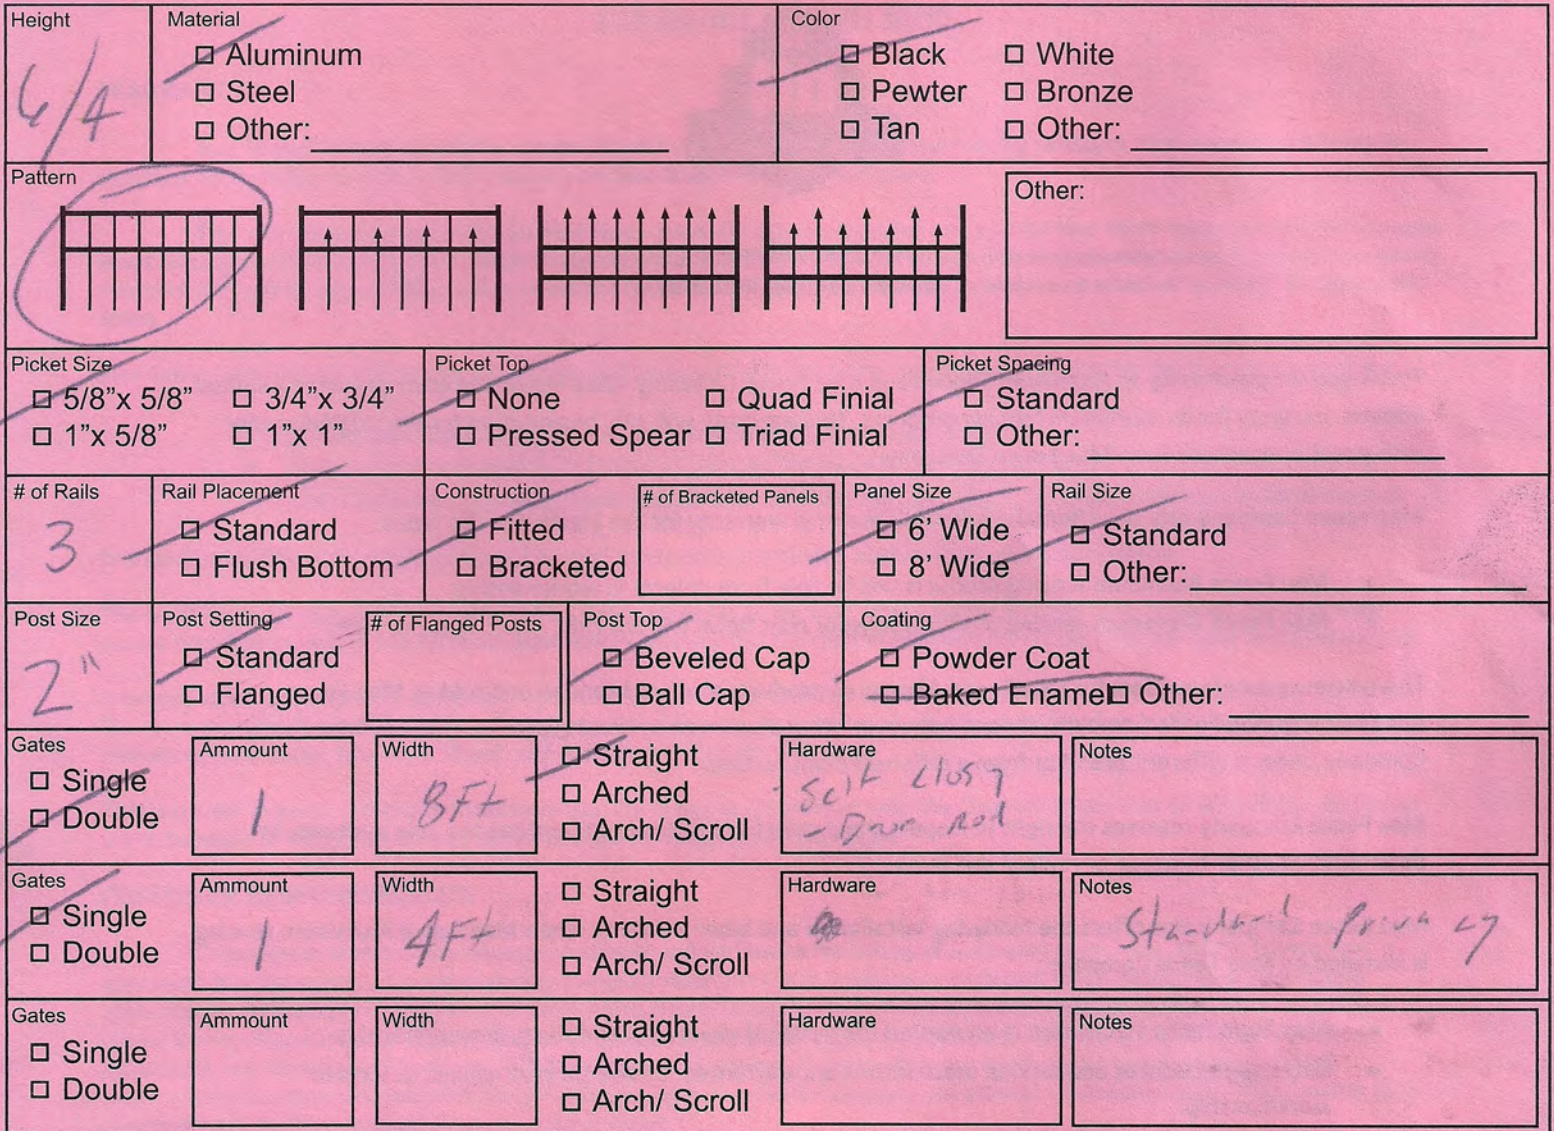 Height
6/4
Material
□ Aluminum
□ Steel
□ Other:
Color
□ Black □ White
□ Pewter □ Bronze
□ Tan □ Other:
Pattern
Other:
Picket Size
□ 5/8”x 5/8” □ 3/4”x 3/4”
□ 1”x 5/8” □ 1”x 1”
Picket Top
□ None □ Quad Finial
□ Pressed Spear □ Triad Finial
Picket Spacing
□ Standard
□ Other:
# of Rails
3
Rail Placement
□ Standard
□ Flush Bottom
Construction
□ Fitted
□ Bracketed
# of Bracketed Panels
Panel Size
□ 6’ Wide
□ 8’ Wide
Rail Size
□ Standard
□ Other:
Post Size
2"
Post Setting
□ Standard
□ Flanged
# of Flanged Posts
Post Top
□ Beveled Cap
□ Ball Cap
Coating
□ Powder Coat
□ Baked Enamel □ Other:
Gates
□ Single
□ Double
Ammount
1
Width
8Ft
□ Straight
□ Arched
□ Arch/ Scroll
Hardware
- Self closy
- Drop Rod
Notes
Gates
□ Single
□ Double
Ammount
1
Width
4Ft
□ Straight
□ Arched
□ Arch/ Scroll
Hardware
Notes
Standard Privacy
Gates
□ Single
□ Double
Ammount
Width
□ Straight
□ Arched
□ Arch/ Scroll
Hardware
Notes